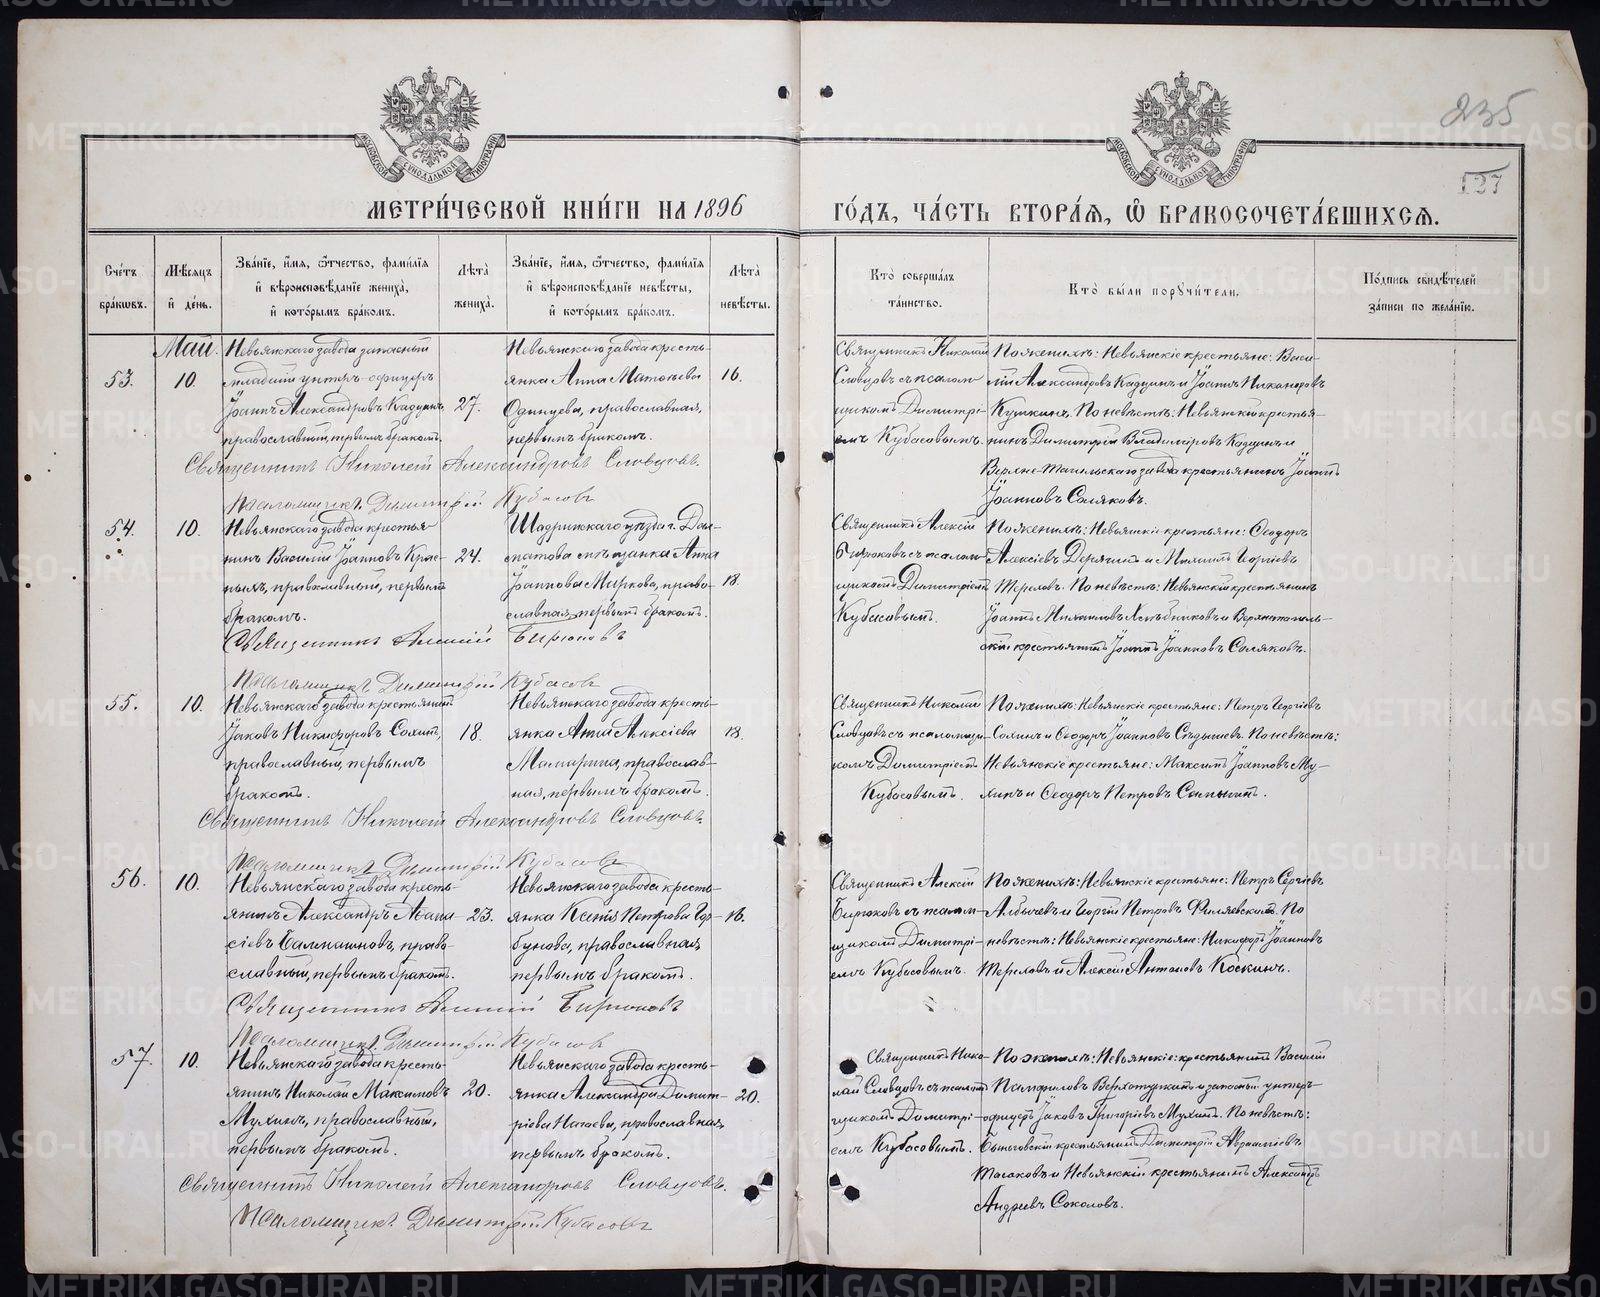 235
127
МЕТРИ́ЧЕСКОЙ КНИ́ГИ НА 1896
ГО́ДЪ, ЧА́СТЬ ВТОРА́Я, Ѡ҆ БРАКОСОЧЕТА́ВШИХСЯ.
Счётъ бра́ковъ.
Мѣ́сяцъ и҆ де́нь.
Зва́нїе, и҆́мя, ѻ҆́тчество, фами́лїя и҆ вѣроисповѣ́данїе жениха̀, и҆ кото́рымъ бра́комъ.
Лѣ́та жениха̀.
Зва́нїе, и҆́мя, ѻ҆́тчество, фами́лїя и҆ вѣроисповѣ́данїе невѣ́сты, и҆ кото́рымъ бра́комъ.
Лѣ́та невѣ́сты.
Кто̀ соверша́лъ та́инство.
Кто̀ бы́ли порꙋчи́тели.
По́дпись свидѣ́телей за́писи по жела́нїю.
Май.
53.
10.
Невьянскаго завода запасный
младшій унтеръ-офицеръ
Іоаннъ Александровъ Кадцынъ,
православный, первымъ бракомъ.
27.
Невьянскаго завода кресть-
янка Анна Матвѣева
Одинцева, православная,
первымъ бракомъ.
16.
Священникъ Николай
Словцовъ съ псалом-
щикомъ Димитрі-
емъ Кубасовымъ.
По женихѣ: Невьянскіе крестьяне: Васи-
лій Александровъ Кадцынъ и Іоаннъ Никаноровъ
Кушкинъ. По невѣстѣ: Невьянскій крестья-
нинъ Димитрій Владиміровъ Кадцынъ и
Верхне-Тагильскаго завода крестьянинъ Іоаннъ
Іоанновъ Соляковъ.
Священникъ Николай Александровъ Словцовъ.
Псаломщикъ Димитрій Кубасовъ
54.
10.
Невьянскаго завода крестья-
нинъ Василій Іоанновъ Крас-
ныхъ, православный, первымъ
бракомъ.
24.
Шадринскаго уѣзда г. Дал-
матова мѣщанка Анна
Іоаннова Миркова, право-
славная, первымъ бракомъ.
18.
Священникъ Алексій
Бирюковъ съ псалом-
щикомъ Димитріемъ
Кубасовымъ.
По женихѣ: Невьянскіе крестьяне: Ѳеодоръ
Алексіевъ Дерягинъ и Георгіевъ
Тереховъ. По невѣстѣ: Невьянскій крестьянинъ
Іоаннъ Михаиловъ Хлѣбниковъ и Верхнетагиль-
скій крестьянинъ Іоаннъ Іоанновъ Соляковъ.
Священникъ Алексій Бирюковъ
Псаломщикъ Димитрій Кубасовъ
55.
10.
Невьянскаго завода крестьянинъ
Іаковъ Никифоровъ Сохинъ,
православный, первымъ
бракомъ.
18.
Невьянскаго завода кресть-
янка Анна Алексіева
Мамарина, православ-
ная, первымъ бракомъ.
18.
Священникъ Николай
Словцовъ съ псаломщи-
комъ Димитріемъ
Кубасовымъ.
По женихѣ: Невьянскіе крестьяне: Петръ Георгіевъ
Сохинъ и Ѳеодоръ Іоанновъ Сѣдышевъ. По невѣстѣ:
Невьянскіе крестьяне: Максимъ Іоанновъ Му-
хинъ и Ѳеодоръ Петровъ
Священникъ Николай Александровъ Словцовъ.
Псаломщикъ Димитрій Кубасовъ
56.
10.
Невьянскаго завода кресть-
янинъ Александръ Аѳана-
сіевъ Балмашновъ, право-
славный, первымъ бракомъ.
23.
Невьянскаго завода кресть-
янка Ксенія Петрова Гор-
бунова, православная
первымъ бракомъ.
18.
Священникъ Алексій
Бирюковъ съ псалом-
щикомъ Димитрі-
емъ Кубасовымъ.
По женихѣ: Невьянскіе крестьяне: Петръ Сергіевъ
Албычевъ и Георгій Петровъ Филяевскихъ. По
невѣстѣ: Невьянскіе крестьяне: Никифоръ Іоанновъ
Тереховъ и Алексій Антоновъ Коскинъ.
Священникъ Алексій Бирюковъ
Псаломщикъ Димитрій Кубасовъ
57.
10.
Невьянскаго завода кресть-
янинъ Николай Максимовъ
Мухинъ, православный,
первымъ бракомъ.
20.
Невьянскаго завода кресть-
янка Александра Димит-
ріева Нагаева, православная,
первымъ бракомъ.
20.
Священникъ Нико-
лай Словцовъ съ псалом-
щикомъ Димитрі-
емъ Кубасовымъ.
По женихѣ: Невьянскіе: крестьянинъ Василій
Памфиловъ Верхотурскихъ и запасный унтеръ-
офицеръ Іаковъ Григоріевъ Мухинъ. По невѣстѣ:
Быньговскій крестьянинъ Димитрій Авраміевъ
Токаковъ и Невьянскій крестьянинъ Александръ
Андреевъ Соколовъ.
Священникъ Николай Александровъ Словцовъ.
Псаломщикъ Димитрій Кубасовъ
METRIKI.GASO-URAL.RU